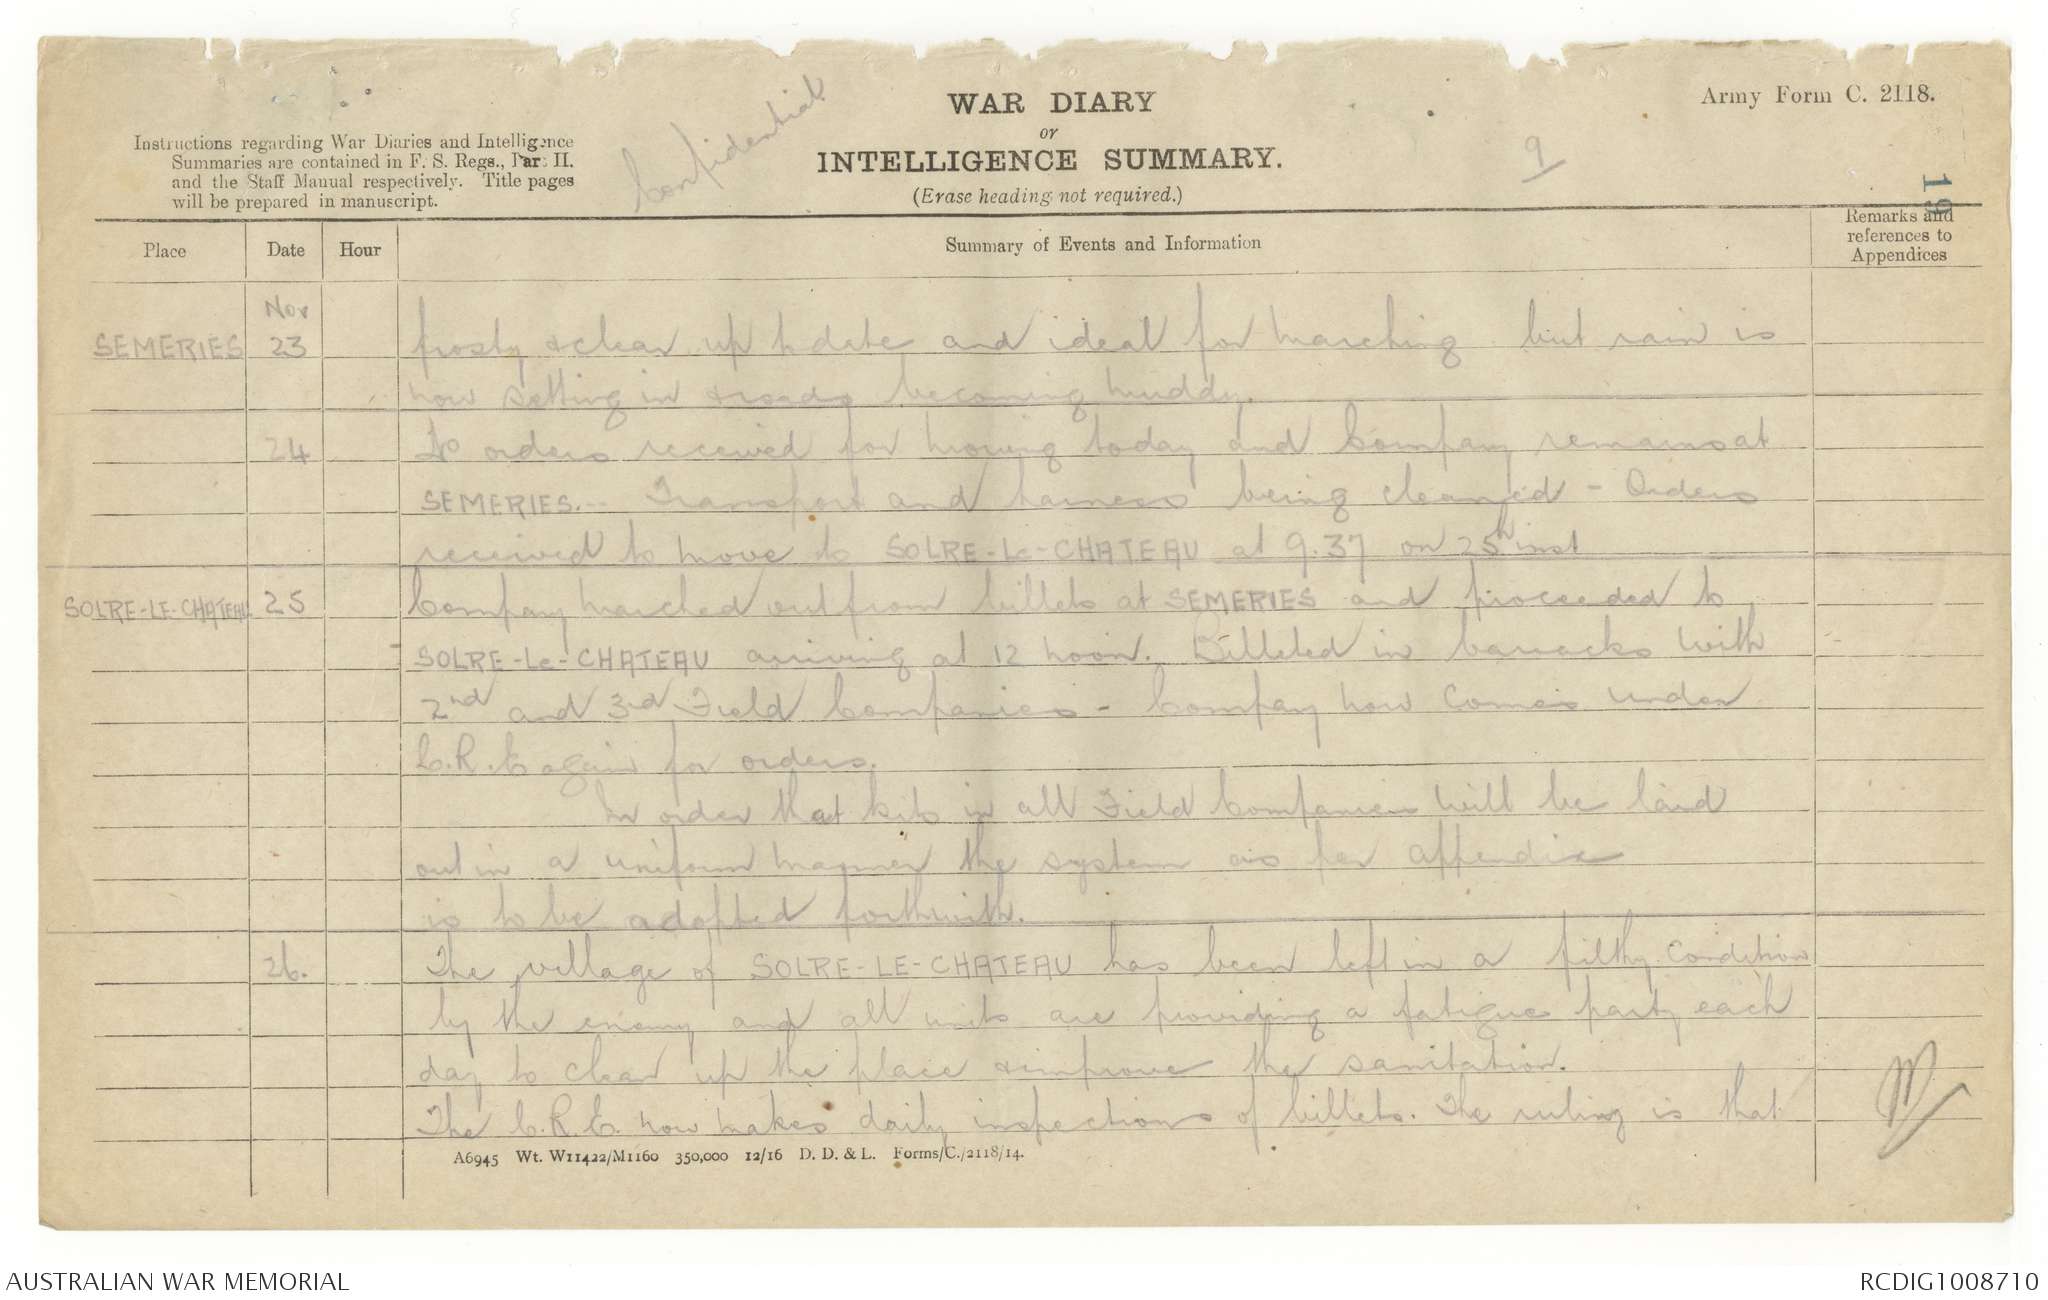 WAR DIARY
or
INTELLIGENCE SUMMARY.
(Erase heading not required.)
Army Form C. 2118.
Instructions regarding War Diaries and Intelligence
Summaries are contained in F. S. Regs., Part II.
and the Staff Manual respectively. Title pages
will be prepared in manuscript.
Confidential
9
19
Place
Date
Hour
Summary of Events and Information
Remarks and
references to
Appendices
Nov
SEMERIES 23 frosty & clear up to date and ideal for marching but rain is
now setting in & roads becoming muddy.
24 No orders received for moving today and Company remains at
SEMERIES.-- Transport and harness being cleaned - Orders
received to move to SOLRE-Le-CHATEAU at 9.37 on 25th inst
SOLRE-LE-CHATEAU 25 Company marched out from billets at SEMERIES and proceeded to
SOLRE-Le-CHATEAU arriving at 12 noon. Billeted in barracks with
2nd and 3rd Field Companies - Company now comes under
C.R.E again for orders.
In order that kits in all Field Companies will be laid
out in a uniform manner the system as per appendix
is to be adopted forthwith.
26. The village of SOLRE-LE-CHATEAU has been left in a filthy condition
by the enemy and all units are providing a fatigue party each
day to clean up the place & improve the sanitation.
The C.R.E. now makes daily inspections of billets. The ruling is that
A6945 Wt. W11422/M1160 350,000 12/16 D. D. & L. Forms/C./2118/14.
AUSTRALIAN WAR MEMORIAL
RCDIG1008710